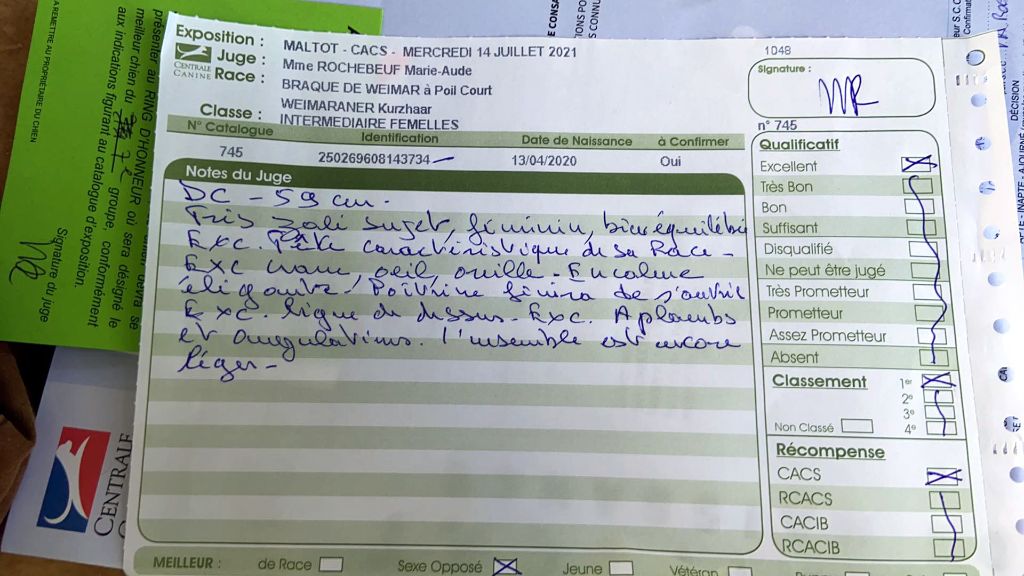 A REMETTRE AU PROPRIÉTAIRE DU CHIEN
présenter au RING D'HONNEUR où sera désigné le
meilleur chien du groupe, conformément
aux indications figurant au catalogue d'exposition.
Signature du juge
CENTRALE
Exposition : MALTOT - CACS - MERCREDI 14 JUILLET 2021
1048
CENTRALE CANINE
Juge : Mme ROCHEBEUF Marie-Aude
Race : BRAQUE DE WEIMAR à Poil Court
WEIMARANER Kurzhaar
Classe : INTERMEDIAIRE FEMELLES
Signature :
MR
N° Catalogue Identification Date de Naissance à Confirmer
745 250269608143734 13/04/2020 Oui
n° 745
Notes du Juge
DC - 59 cm.
Très joli sujet, féminin, bien équilibré
Exc. Tête caractéristique de sa Race -
Exc crane, oeil, oreille - Encolure
élégante, Poitrine finira de s'ouvrir
Exc. ligne de dessus - Exc. Aplombs
et angulations. l'ensemble est encore
léger -
Qualificatif
Excellent
Très Bon
Bon
Suffisant
Disqualifié
Ne peut être jugé
Très Prometteur
Prometteur
Assez Prometteur
Absent
Classement 1er
2e
3e
Non Classé 4e
Récompense
CACS
RCACS
CACIB
RCACIB
MEILLEUR : de Race Sexe Opposé Jeune Vétéran